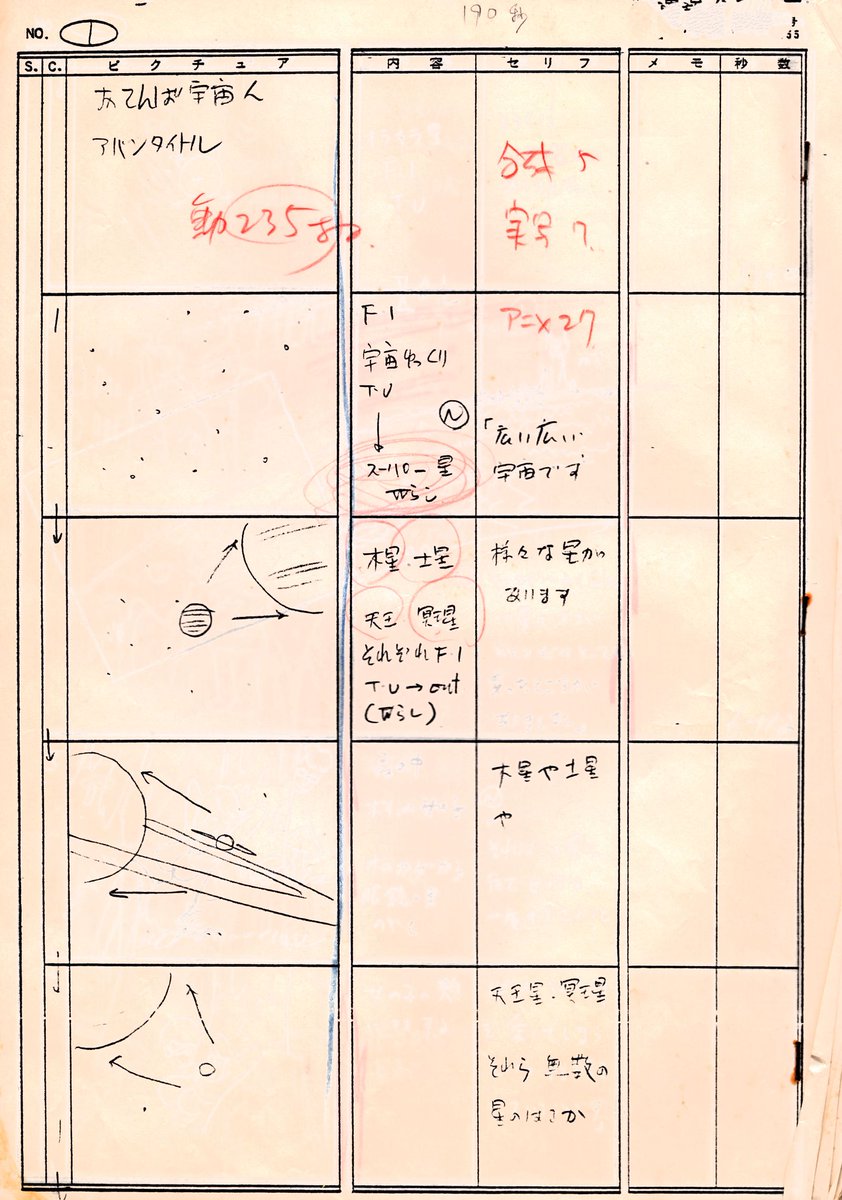 190秒
NO. 1
S. C. ピクチュア 内容 セリフ メモ 秒数
おてんば宇宙人
アバンタイトル
合成 5
実写 7
アニメ27
1
F・I
宇宙ゆっくり
T・U
↓
N
スーパー星
「広い広い
宇宙です
木星、土星
天王 冥王星
それぞれF・I
T・U→out
様々な星が
あります
木星や土星
や
天王星、冥王星
それら 無数の